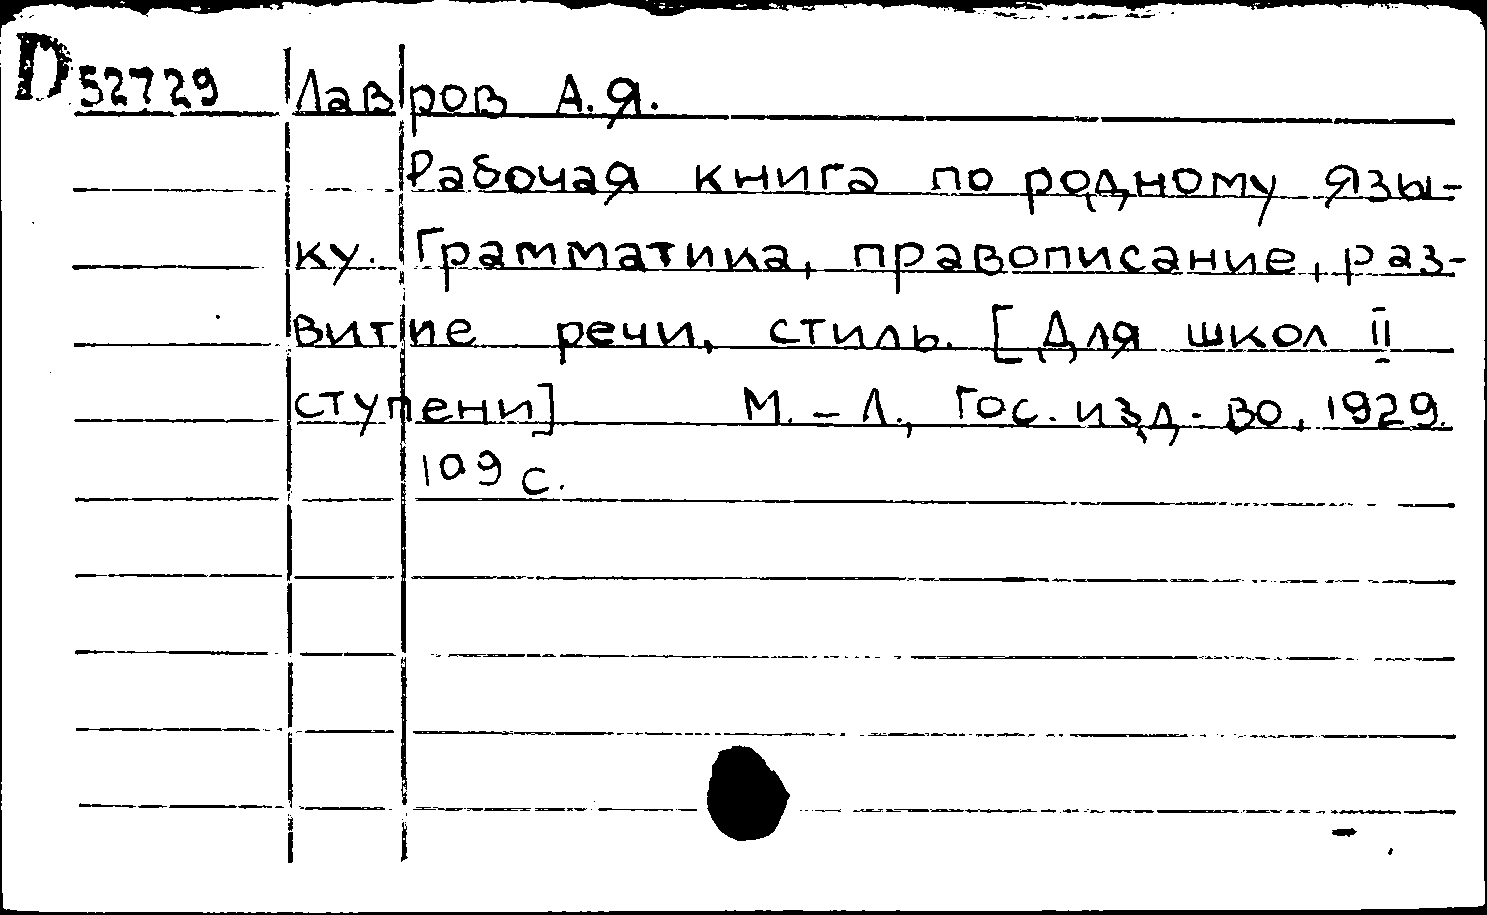 D 52729 Лавров А.Я.
Рабочая книга по родному язы-
ку. Грамматика, правописание, раз-
витие речи, стиль. [Для школ II
ступени] М.-Л., Гос. изд-во, 1929.
109 с.